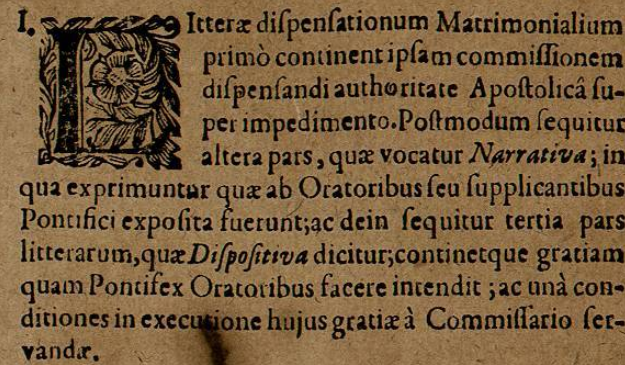 I. LItteræ diſpenſationum Matrimonialium
primò continent ipſam commiſſionem
diſpenſandi authoritate Apoſtolicâ ſu-
per impedimento. Poſtmodum ſequitur
altera pars, quæ vocatur Narrativa; in
qua exprimuntur quæ ab Oratoribus ſeu ſupplicantibus
Pontifici expoſita fuerunt; ac dein ſequitur tertia pars
litterarum, quæ Diſpoſitiva dicitur; continetque gratiam
quam Pontifex Oratoribus facere intendit; ac unà con-
ditiones in executione hujus gratiæ à Commiſſario ſer-
vandæ.